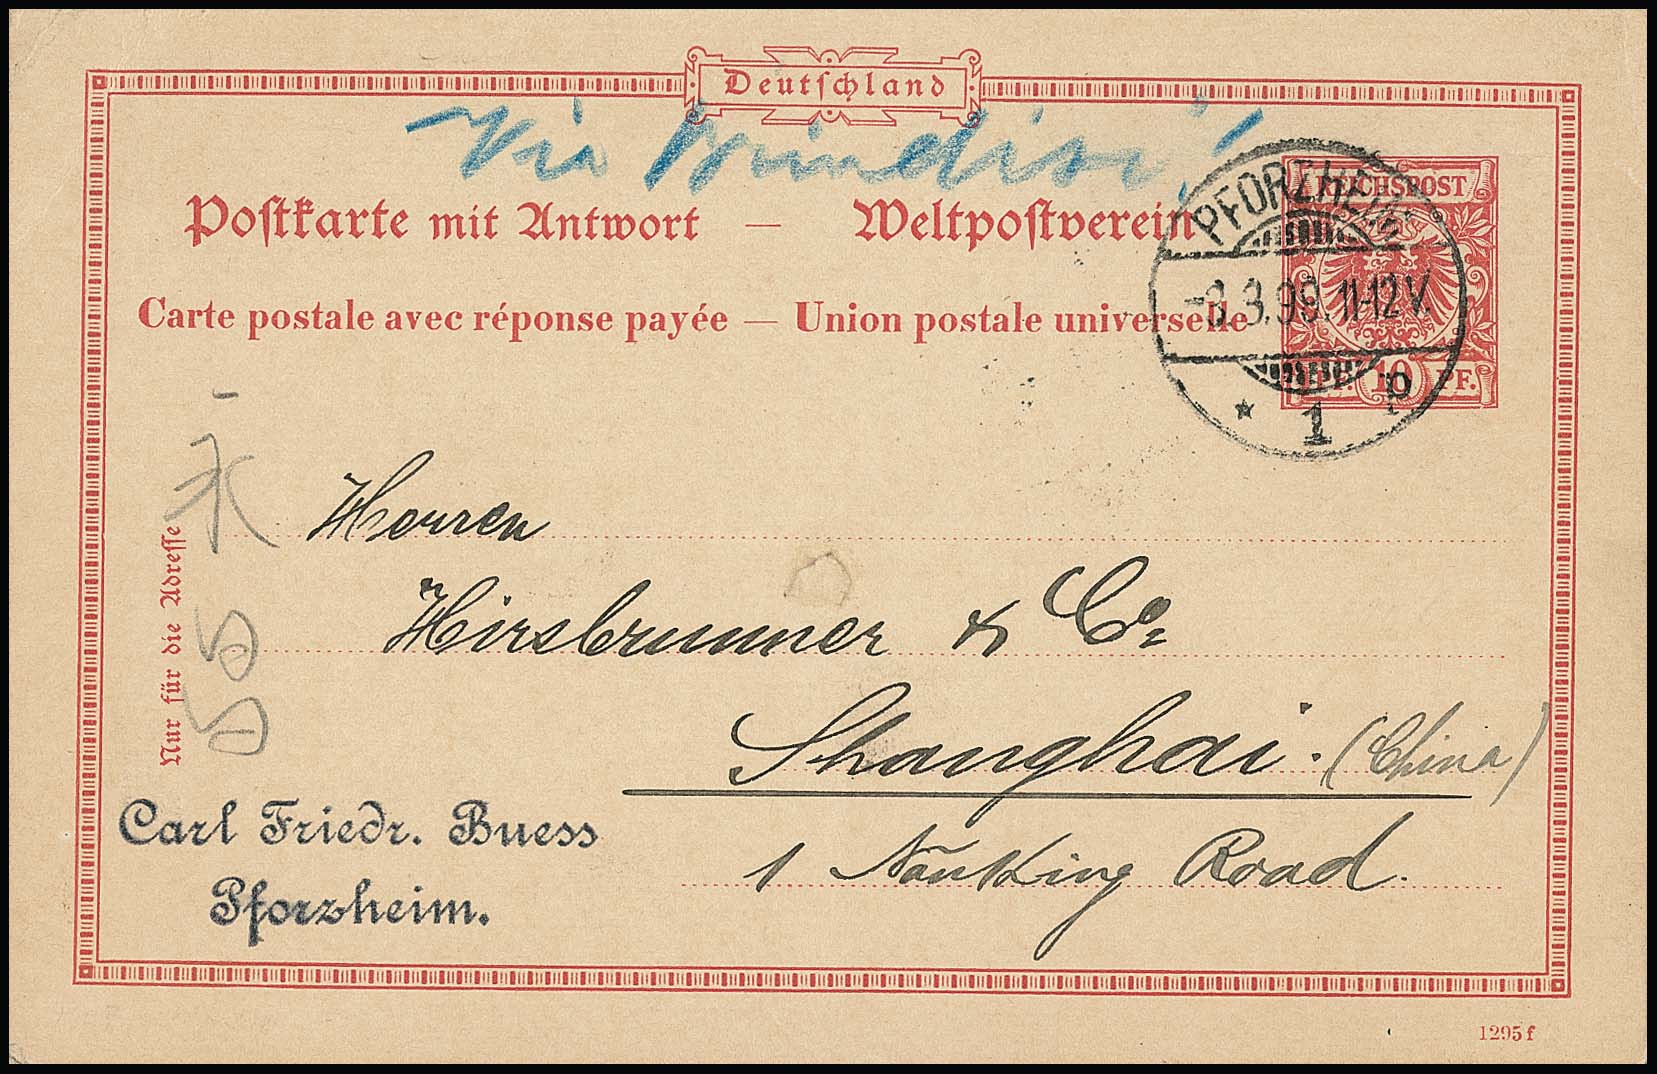 Deutschland
Via Brindisi!
Postkarte mit Antwort — Weltpostverein
Carte postale avec réponse payée — Union postale universelle
REICHSPOST
10 PF.
PFORZHEIM
-3.3.99.11-12V.
* 1 p
Nur für die Adresse
永昌
Herren
Hirsbrunner & Co.
Shanghai. (China)
1 Nanking Road.
Carl Friedr. Buess
Pforzheim.
1295 f